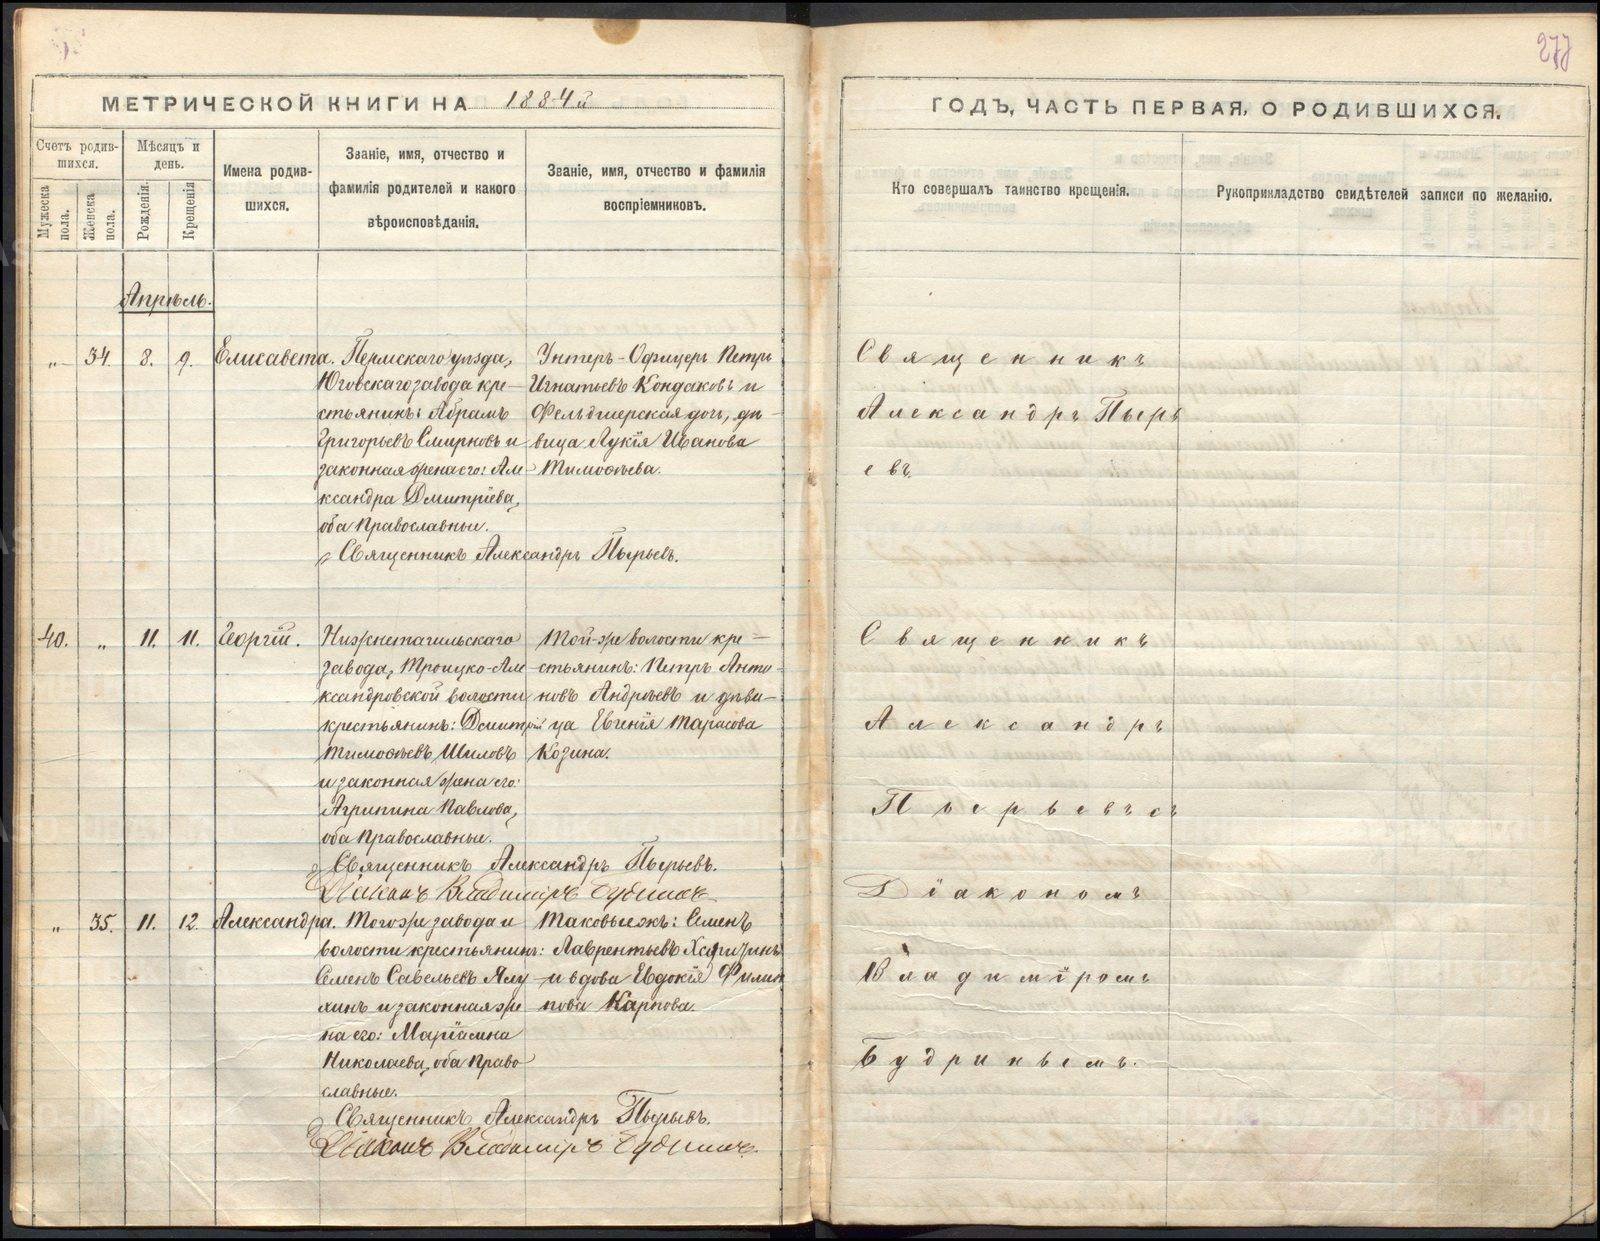 277
МЕТРИЧЕСКОЙ КНИГИ НА 1884й
ГОДЪ, ЧАСТЬ ПЕРВАЯ, О РОДИВШИХСЯ.
Счетъ родив-
шихся.
Мужеска
пола.
Женска
пола.
Мѣсяцъ и
день.
Рожденія.
Крещенія
Имена родив-
шихся.
Званіе, имя, отчество и
фамилія родителей и какого
вѣроисповѣданія.
Званіе, имя, отчество и фамилія
воспріемниковъ.
Кто совершалъ таинство крещенія.
Рукоприкладство свидѣтелей записи по желанію.
Апрѣль.
„ 34. 8. 9. Елисавета.
Пермскаго уѣзда,
Юговскаго завода кре-
стьянинъ: Абрамъ
Григорьевъ Смирновъ и
законная жена его: Але-
ксандра Дмитріева,
оба Православные.
Унтеръ-Офицеръ Петръ
Игнатьевъ Кондаковъ и
Фельдшерская дочь, дѣ-
вица Лукія Иванова
Тимофѣева.
Священникъ Александръ Пырьевъ.
Священникъ
Александръ Пырь
евъ.
40. „ 11. 11. Георгій.
Нижнетагильскаго
завода, Троицко-Але-
ксандровской волости
крестьянинъ: Дмитрій
Тимофѣевъ Шиловъ
и законная жена его:
Агрипина Павлова,
оба Православные.
Той-же волости кре-
стьянинъ: Петръ Анто-
новъ Андреевъ и дѣви-
ца Евгенія Тарасова
Козина.
Священникъ Александръ Пырьевъ.
Діаконъ Владиміръ Будринъ
Священникъ
Александръ
Пырьевъ съ
Діакономъ
Владиміромъ
Будринымъ.
„ 35. 11. 12. Александра.
Того-же завода и
волости крестьянинъ:
Семенъ Савельевъ Яму
хинъ и законная же
на его: Маріамна
Николаева, оба Право
славные.
Таковыежъ: Семенъ
Лаврентьевъ
и вдова Евдокія Филип
пова Карпова.
Священникъ Александръ Пырьевъ.
Діаконъ Владиміръ Будринъ.